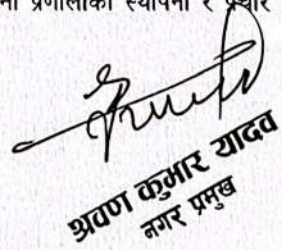 प्रणालीको स्थापना र प्रचार
श्रवण कुमार यादव
नगर प्रमुख